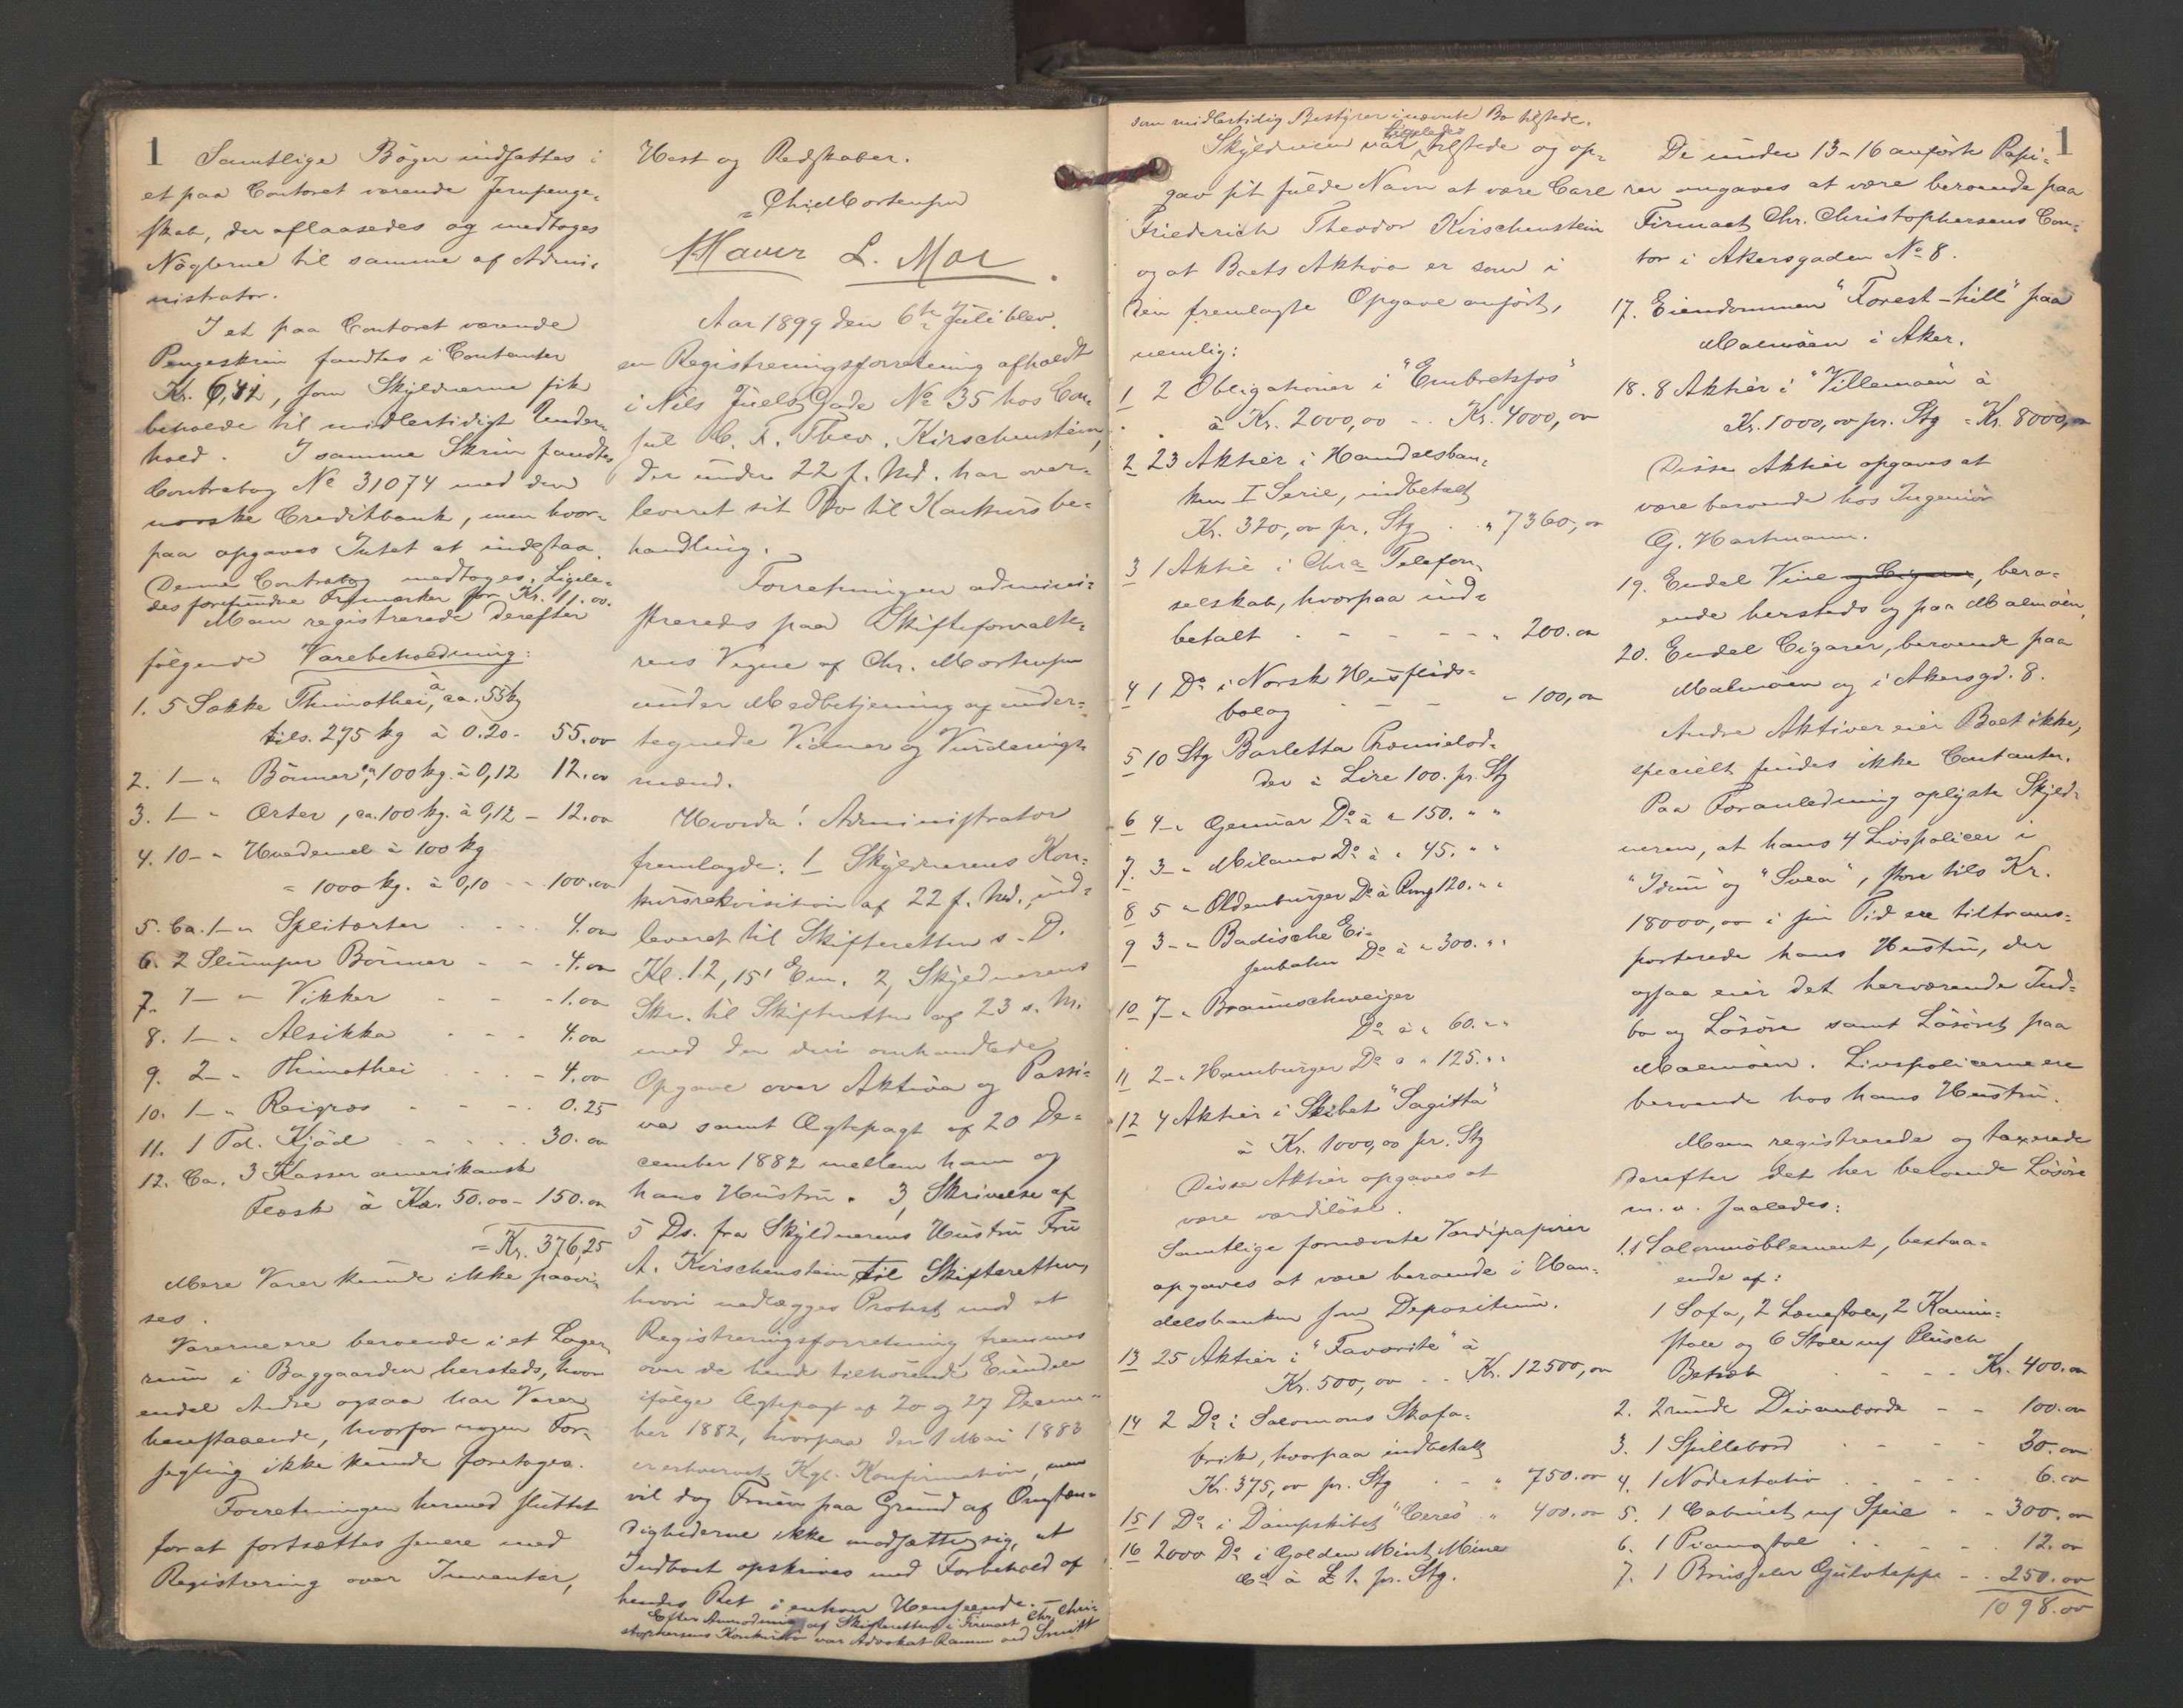 1
Samtlige Bøger indsattes i
et paa Contoret værende Jernpenge-
skab, der aflaasedes og medtoges
Nøglerne til samme af Admi-
nistrator.
I et paa Contoret værende
Pengeskrin fandtes i Contanter
Kr. som Skyldnerne fik
beholde til midlertidigt Under-
hold. I samme Skrin fandtes
Contrabog No 31074 med den
norske Creditbank, men hvor-
paa opgaves Intet at indestaa.
Denne Contrabog medtoges. Ligele-
des forefundne Frimærker for Kr. 11.00.
Man registrerede derefter
følgende Varebeholdning:
1. 5 Sække Thimothei, à ca. 55 kg
tils. 275 kg à 0.20 - 55.00
2. 1 - " Bönner, " 100 kg. à 0,12 12.00
3. 1 - " Erter, ca. 100 kg. à 0,12 - 12.00
4. 10 - " Hvedemel à 100 kg
= 1000 kg. à 0,10 - - 100.00
5. Ca. 1 - " Splitærter - - - 4.00
6. 2 Slumper Bönner - - - 4.00
7. 1 - " Vikker - - - 1.00
8. 1 - " Alsikke - - - 4.00
9. 2 - " Thimothei - - - 4.00
10. 1 - " Reigras - - - 0.25
11. 1 Td. Kjöd - - - 30.00
12. Ca. 3 Kasser amerikansk
Flesk à Kr. 50.00 - 150.00
= Kr. 376,25
Mere Varer kunde ikke paavi-
ses.
Varerne ere beroende i et Lager-
rum i Baggaarden hersteds, hvor
endel Andre ogsaa har Varer
henstaaende, hvorfor nogen For-
segling ikke kunde foretages.
Forretningen hermed sluttet
for at fortsættes senere med
Registrering over Inventar,
Hest og Redskaber.
Chr. Mortensen
L. Moe
Aar 1899 den 6te Juli blev
en Registreringsforretning afholdt
i Nils Juels Gade No 35 hos Con-
sul C. F. Theo. Kirschenstein,
der under 22 f. Md. har over-
leveret sit Bo til Konkursbe-
handling.
Forretningen admini-
streredes paa Skifteforvalte-
rens Vegne af Chr. Mortensen
under Medbetjening af under-
tegnede Vidner og Vurderings-
mænd.
Hvorda! Administrator
fremlagde: 1 Skyldnerens Kon-
kursrekvisition af 22 f. Md., ind-
leveret til Skifteretten s. D.
Kl. 12,15' Em. 2, Skyldnerens
Skr. til Skifteretten af 23 s. M.
med den deri omhandlede
Opgave over Aktiva og Passi-
va samt Ægtepagt af 20 De-
cember 1882 mellem ham og
hans Hustru. 3, Skrivelse af
5 Ds. fra Skyldnerens Hustru Fru
A. Kirschenstein til Skifteretten,
hvori nedlægges Protest mod at
Registreringsforretning fremmes
over de hende tilhørende Eiendele
ifølge Ægtepagt af 20 og 27 Decem-
ber 1882, hvorpaa den 1 Mai 1883
er erhvervet Kgl. Konfirmation, men
vil dog Fruen paa Grund af Omstæn-
dighederne ikke modsætte sig, at
Indboet opskrives med Forbehold af
hendes Ret i enhver Henseende. -
Efter Anmodning af Skifteretten i Firmaet Chr. Chri-
stophersens Konkursbo var Advokat Ramm ved Smitt
som midlertidig Bestyrer i nævnte Bo tilstede.
Skyldneren var ligeledes tilstede og op-
gav sit fulde Navn at være Carl
Friederich Theodor Kirschenstein
og at Boets Aktiva er som i
den fremlagte Opgave anført,
nemlig:
1 2 Obligationer i "Embretsfos"
à Kr. 2000,00 - - Kr. 4000,00
2 23 Aktier i Handelsban-
ken I Serie, indbetalt
Kr. 320,00 pr. Stg - - " 7360,00
3 1 Aktie i Chra Telefon-
selskab, hvorpaa ind-
betalt - - - - - " 200.00
4 1 Do i Norsk Husflids-
bolag - - - " 100,00
5 10 Stg Barletta Præmielod-
der à Lire 100. pr. Stg
6 4 - " Genuar Do à " 150. " "
7. 3 - " Milano Do à " 45. " "
8 5 " Oldenburger Do à Rmg 120. " "
9 3 - " Badische Ei-
senbahn Do à " 300. " "
10 7 - " Braunschweiger
Do à " 60. " "
11 2 - " Hamburger Do à " 125. " "
12 4 Aktier i Skibet "Sagitta"
à Kr. 1000,00 pr. Stg
Disse Aktier opgaves at
være værdiløse.
Samtlige fornævnte Værdipapirer
opgaves at være beroende i Han-
delsbanken som Depositum.
13 25 Aktier i "Favorite" à
Kr. 500,00 - - Kr. 12500,00
14 2 Do i Salomons Skofa-
brik, hvorpaa indbetalt
Kr. 375,00 pr. Stg - - " 750.00
15 1 Do i Dampskibet "Ceres" " 400.00
16 2000 Do i Golden Mint Mine
Co à £ 1. pr. Stg.
1
De under 13-16 anførte Papi-
rer angaves at være beroende paa
Firmaet Chr. Christophersens Con-
tor i Akersgaden No 8.
17. Eiendommen "Forest-hill" paa
Malmøen i Aker.
18. 8 Aktier i "Villemoën" à
Kr. 1000,00 pr. Stg = Kr. 8000,00
Disse Aktier opgaves at
være beroende hos Ingeniør
G. Hartmann.
19. Endel Vine og Cigarer, bero-
ende hersteds og paa Malmøen,
20. Endel Cigarer, beroende paa
Malmøen og i Akersgd. 8.
Andre Aktiver eier Boet ikke,
specielt findes ikke Contanter.
Paa Foranledning oplyste Skyld-
neren, at hans 4 Livspolicer i
"Idun" og "Svea", store tils Kr.
18000,00 i sin Tid ere tiltrans-
porterede hans Hustru, der
ogsaa eier det herværende Ind-
bo og Løsøre samt Løsøret paa
Malmøen. Livspolicerne ere
beroende hos hans Hustru.
Man registrerede og taxerede
derefter det her beroende Løsøre
m. v. saaledes:
1. 1 Salonmöblement, bestaa-
ende af:
1 Sofa, 2 Lænestole, 2 Kamin-
stole og 6 Stole m/ Plüsch
Betræk - - - - Kr. 400.00
2. 2 runde Divanborde - - 100.00
3. 1 Spillebord - - - - 30.00
4. 1 Nodestativ - - - - 6.00
5. 1 Cabinet m/ Speil - - 300.00
6. 1 Pianostol - - - - 12.00
7. 1 Brüsseler Gulvteppe - - 250.00
1098.00